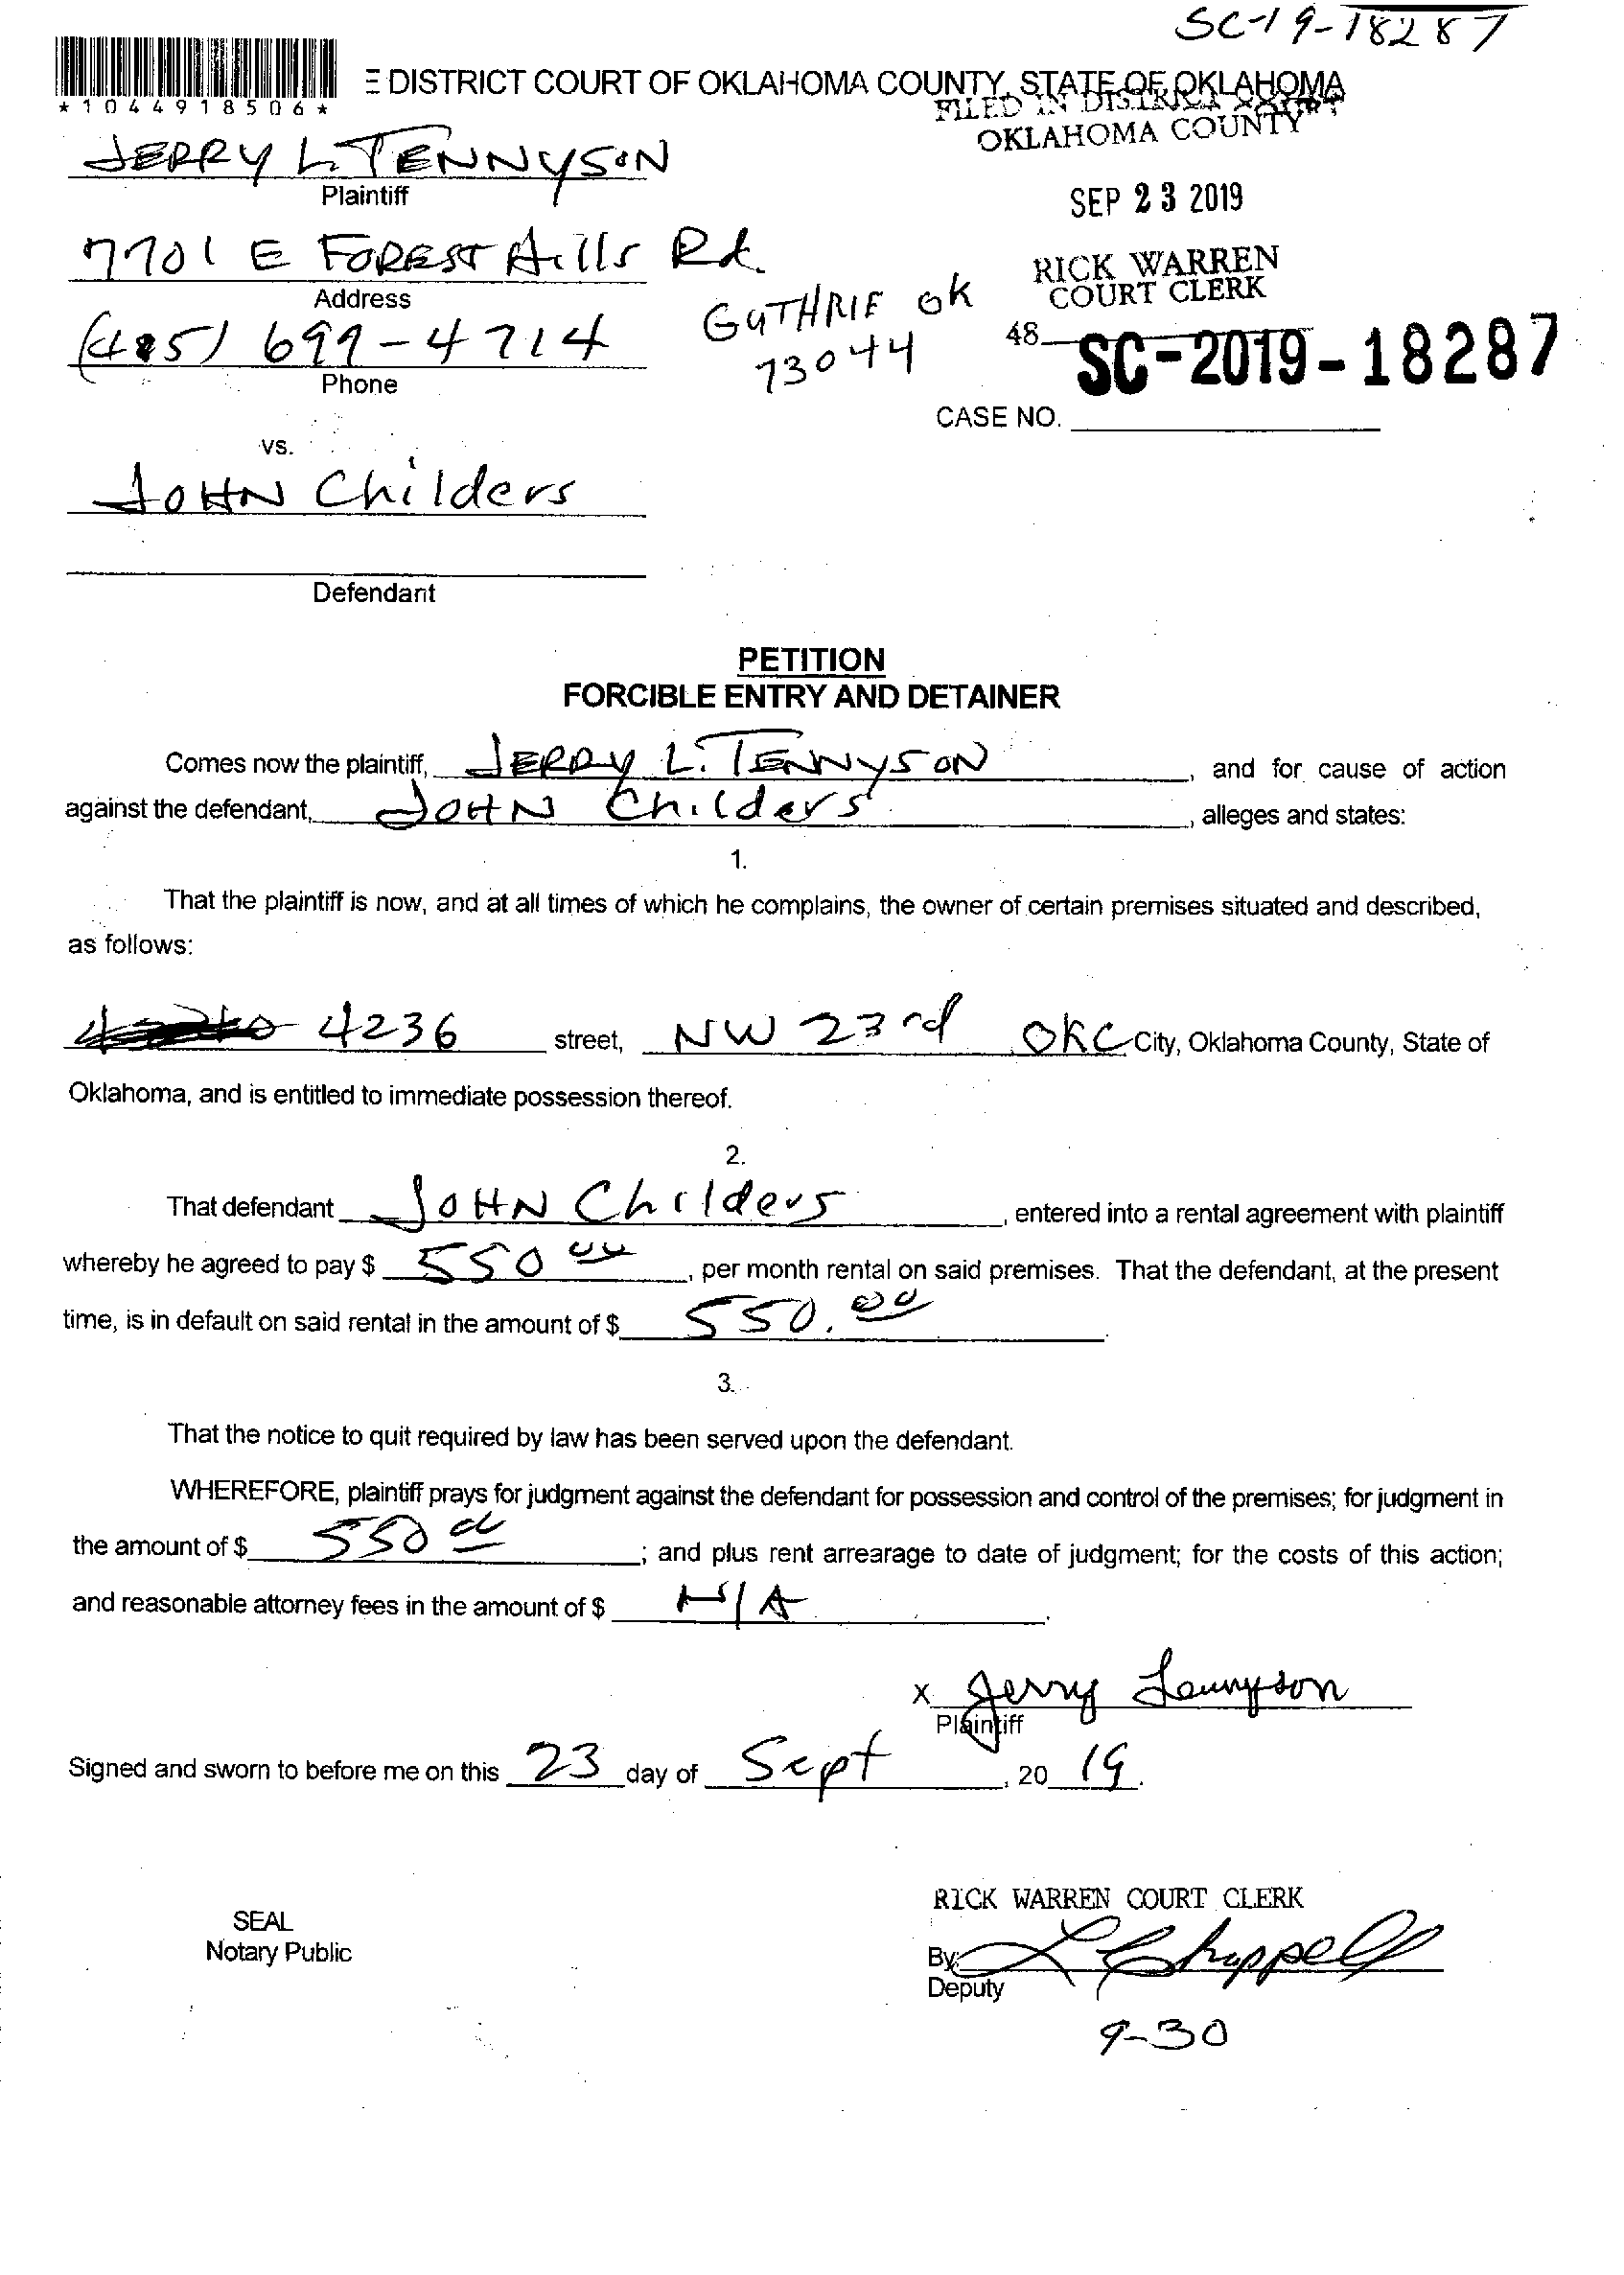 SC-19-18287
E DISTRICT COURT OF OKLAHOMA COUNTY, STATE OF OKLAHOMA
*1044918506*
FILED IN DISTRICT COURT
OKLAHOMA COUNTY
JERRY L. TENNYSON
Plaintiff
SEP 23 2019
7701 E FOREST Hills Rd.
Address
RICK WARREN
COURT CLERK
GUTHRIE OK
73044
(405) 699-4714
Phone
48
SC-2019-18287
CASE NO.
vs.
JOHN Childers
Defendant
PETITION
FORCIBLE ENTRY AND DETAINER
Comes now the plaintiff, JERRY L. TENNYSON, and for cause of action
against the defendant, JOHN Childers, alleges and states:
1.
That the plaintiff is now, and at all times of which he complains, the owner of certain premises situated and described,
as follows:
4236 street, NW 23rd OKC City, Oklahoma County, State of
Oklahoma, and is entitled to immediate possession thereof.
2.
That defendant JOHN Childers, entered into a rental agreement with plaintiff
whereby he agreed to pay $ 550 00, per month rental on said premises. That the defendant, at the present
time, is in default on said rental in the amount of $ 550.00.
3.
That the notice to quit required by law has been served upon the defendant.
WHEREFORE, plaintiff prays for judgment against the defendant for possession and control of the premises; for judgment in
the amount of $ 550 00; and plus rent arrearage to date of judgment; for the costs of this action;
and reasonable attorney fees in the amount of $ N/A.
X Jerry Tennyson
Plaintiff
Signed and sworn to before me on this 23 day of Sept, 20 19.
RICK WARREN COURT CLERK
SEAL
Notary Public
By: L Chappell
Deputy
9-30